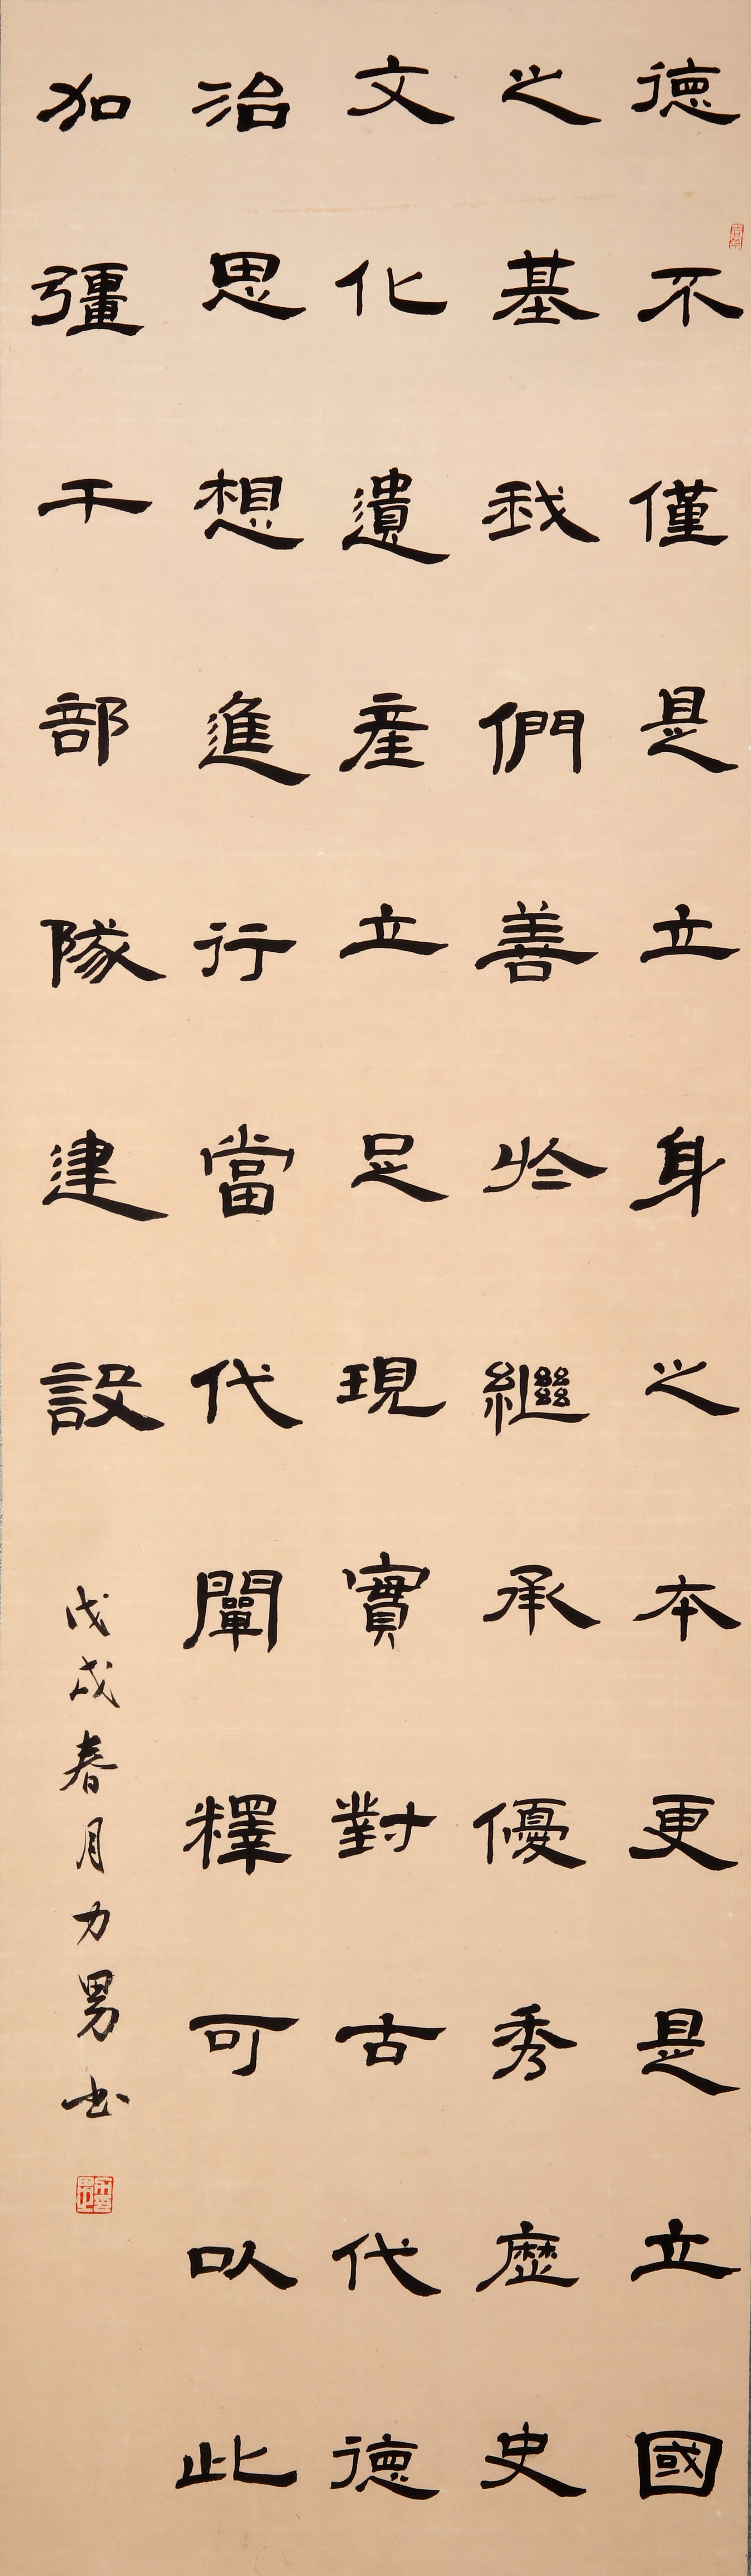 德不僅是立身之本更是立國
之基我們善於繼承優秀歷史
文化遺產立足現實對古代德
治思想進行當代闡釋可以此
加彊干部隊建設
戊戌春月力男书